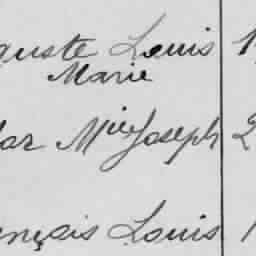 guste Louis 1
Marie
lar Mie Joseph 2
ençais Louis 1